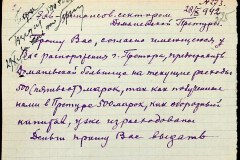 Зав. Финансов. сектором
Доманевской Претуры.
Прошу Вас, согласно имеющегося у
Вас распоряжения г. Претора, предоставить
Доманевской больнице на текущие расходы
500 (пятьсот) марок, так как полученные
нами в Претуре 500 марок, как оборотный
капитал, уже израсходованы
Деньги прошу Вас выдать